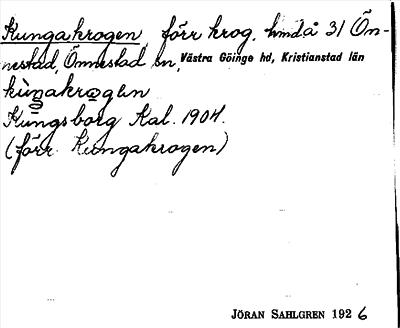 Kungakrogen, förr krog, hmd. å 31 Ön-
nestad, Önnestad sn, Västra Göinge hd, Kristianstad län
kùŋakrꜵgen
Kungsborg Kal. 1904.
(förr Kungakrogen)
JÖRAN SAHLGREN 1926